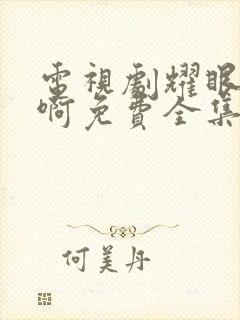 電視劇耀眼
啊免費全集
何美丹